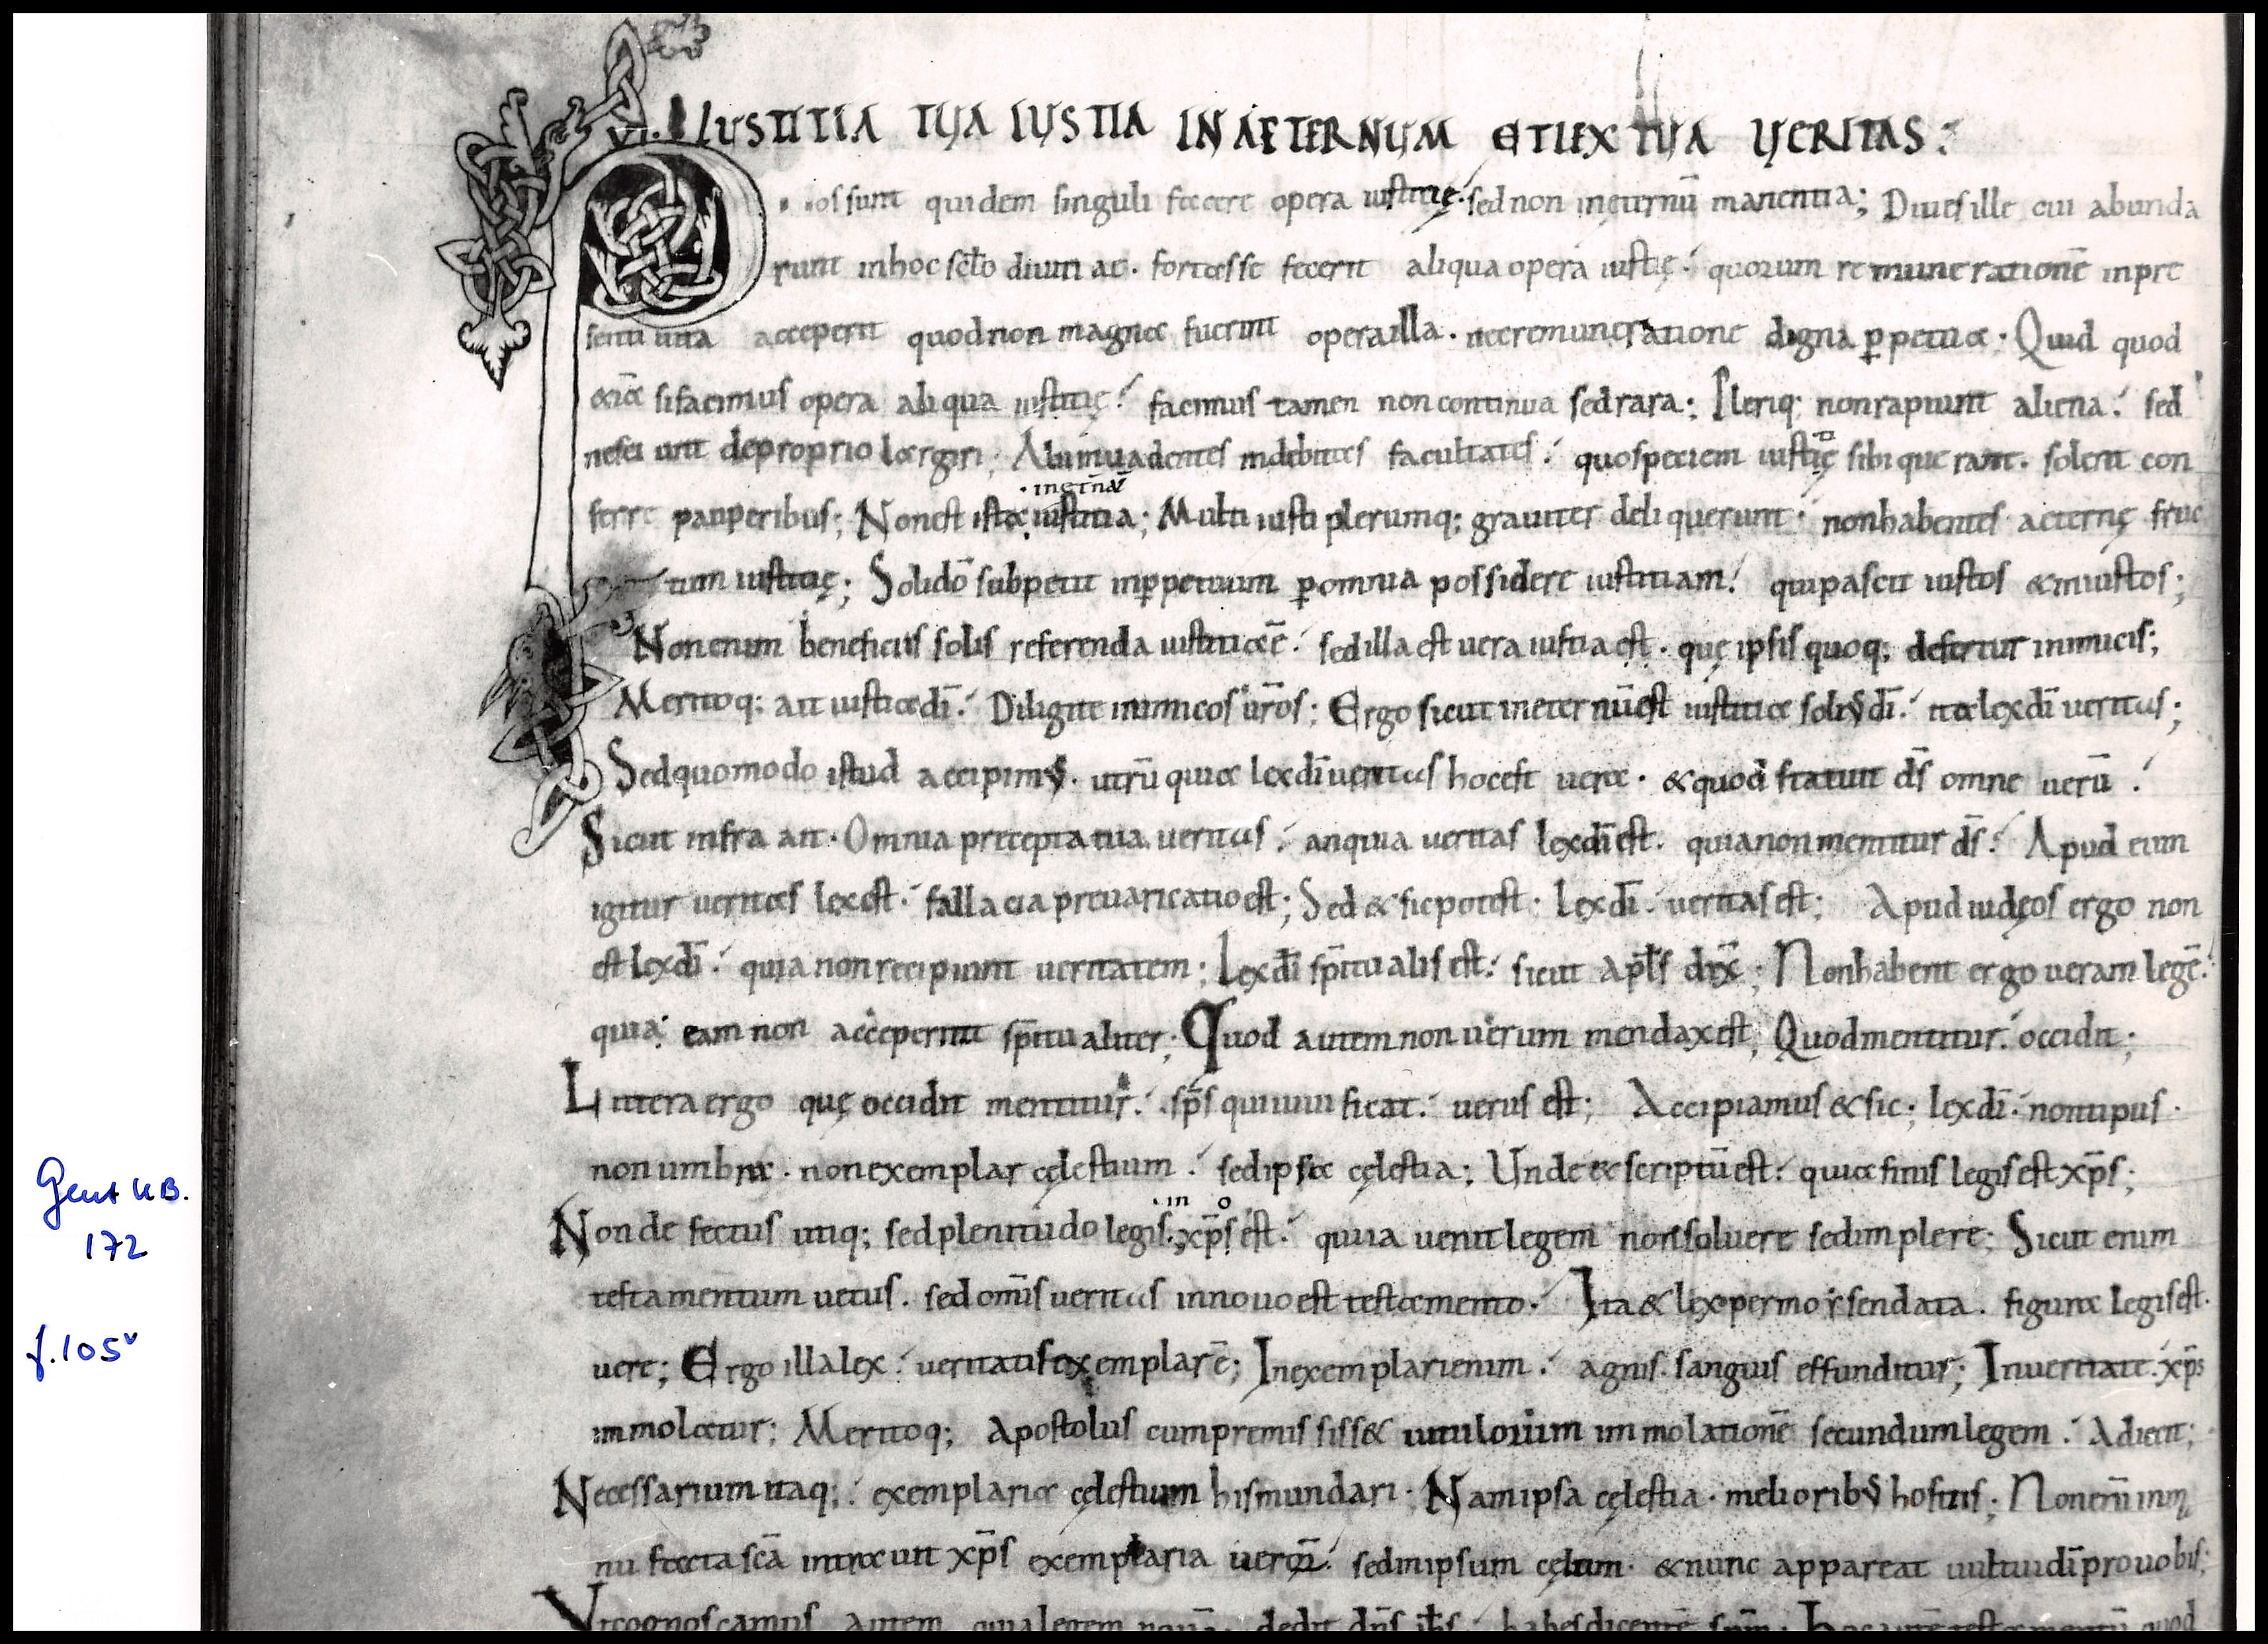 VI. IUSTITIA TUA IUSTIA IN AETERNUM ET LEX TUA VERITAS:
Possunt quidem singuli facere opera iustitię. sed non inęternū manentia; Diues ille cui abunda
runt inhoc sc̄lo diuitiae. fortasse fecerit aliqua opera iustię. quorum remunerationē inpre
senti uita acceperit quod non magna fuerint opera illa. nec remuneratione digna ꝑpetua. Quid quod
&iā si facimus opera aliqua iustitię. facimus tamen non continua sed rara; Pleriq; non rapiunt aliena. sed
nesciunt de proprio largiri; Alii inuadentes indebitas facultates. quo speciem iustię sibi querant. solent con
ferre pauperibus; Non est ista iustitia; Multi iusti plerumq; grauiter deliquerunt. non habentes aeternę fruc
tum iustitię; Soli dō subpetit inꝑpetuum ꝑ omnia possidere iustitiam. qui pascit iustos & iniustos;
Non enim beneficiis solis referenda iustitia ē. sed illa est uera iustia est. quę ipsis quoq; defertur inimicis;
Meritoq; ait iustitia dī. Diligite inimicos ur̄os; Ergo sicut ineternū est iustitia solius dī. ita lex dī ueritas;
Sed quomodo istud accipimus. utrū quia lex dī ueritas hoc est uera. & quod statuit d̄s omne uerū.
Sicut infra ait. Omnia precepta tua ueritas. an quia ueritas lex dī est. quia non mentitur d̄s. Apud eum
igitur ueritas lex est. fallacia preuaricatio est; Sed & sic potest. Lex dī. ueritas est; Apud iudęos ergo non
est lex dī. quia non recipiunt ueritatem; Lex dī sp̄itualis est. sicut ap̄ls dix̄; Non habent ergo ueram legē.
quia eam non acceperunt sp̄itualiter; Quod autem non uerum mendax est; Quod mentitur. occidit;
Littera ergo quę occidit mentitur. sp̄s qui uiuificat. uerus est; Accipiamus & sic; lex dī. non tipus.
non umbra. non exemplar cęlestium. sed ipsa cęlestia; Unde & scriptū est. quia finis legis est xp̄s;
Non defectus utiq; sed plenitudo legis. xp̄s est. quia uenit legem non soluere sed implere; Sicut enim
testamentum uetus. sed om̄is ueritas in nouo est testamento. Ita & lex per moysen data. figura legis est.
uere; Ergo illa lex. ueritatis exemplar ē; In exemplari enim. agnis sanguis effunditur; In ueritate. xp̄s
immolatur; Meritoq; Apostolus cum premississ& uitulorum immolationē secundum legem. Adiecit;
Necessarium itaq;. exemplaria cęlestium his mundari. Nam ipsa cęlestia. melioribus hostiis; Non enī in m
nu facta scā introeuit xp̄s exemplaria uerorū. sed in ipsum cęlum. & nunc appareat uultui dī pro uobis;
Vt cognoscamus autem quia legem nouā. dedit dn̄s
Gent U.B.
172
f. 105v